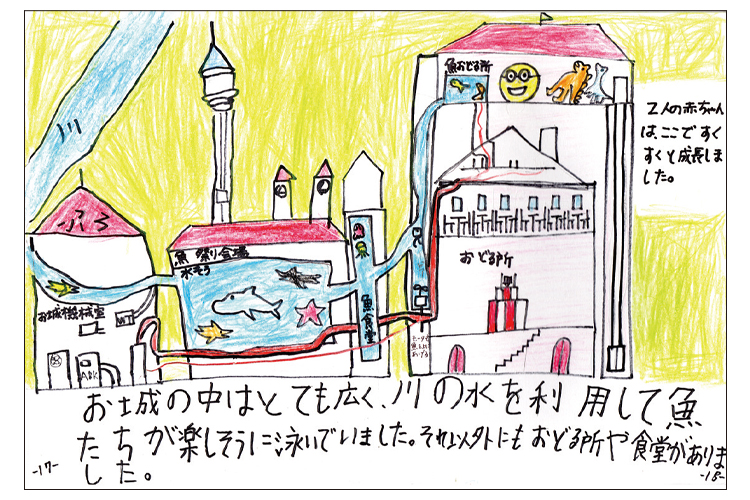 川
魚おどる所
2人の赤ちゃん
は、ここですく
すくと成長しま
した。
ふろ
魚 祭り会場
水そう
お城機械室
魚食堂
おどる所
お城の中はとても広く、川の水を利用して魚
たちが楽しそうに泳いでいました。それ以外にもおどる所や食堂がありま
した。
-17-
-18-